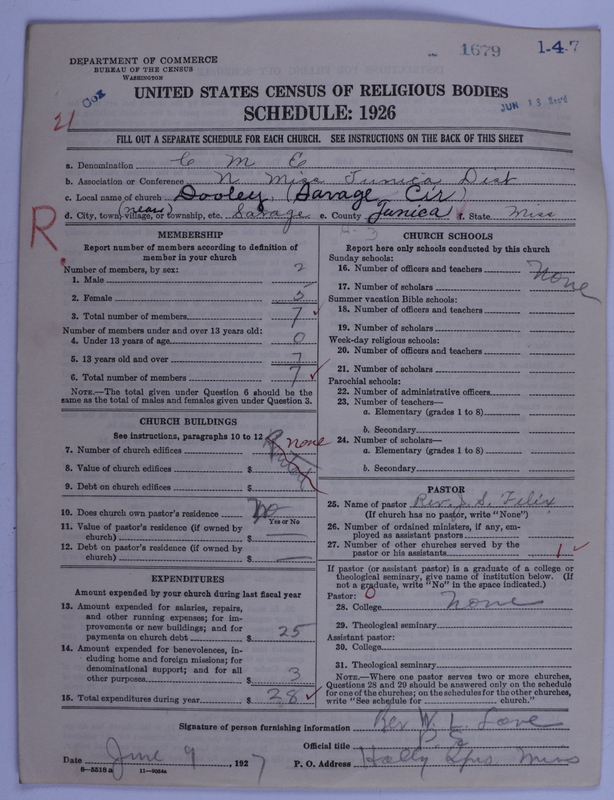 1679 1-4-7
DEPARTMENT OF COMMERCE
BUREAU OF THE CENSUS
WASHINGTON
UNITED STATES CENSUS OF RELIGIOUS BODIES
JUN 13 Recd
21
SCHEDULE: 1926
FILL OUT A SEPARATE SCHEDULE FOR EACH CHURCH. SEE INSTRUCTIONS ON THE BACK OF THIS SHEET
a. Denomination C M E
b. Association or Conference N. Miss Tunica Dist
c. Local name of church Dooley (Savage Cir)
(near)
d. City, town, village, or township, etc. Savage e. County Tunica f. State Miss
R.
MEMBERSHIP
Report number of members according to definition of
member in your church
Number of members, by sex:
1. Male 2
2. Female 5
3. Total number of members 7
Number of members under and over 13 years old:
4. Under 13 years of age 0
5. 13 years old and over 7
6. Total number of members 7
NOTE.—The total given under Question 6 should be the
same as the total of males and females given under Question 3.
CHURCH BUILDINGS
See instructions, paragraphs 10 to 12
none
7. Number of church edifices
8. Value of church edifices $
9. Debt on church edifices $
10. Does church own pastor's residence No
Yes or No
11. Value of pastor's residence (if owned by
church) $ —
12. Debt on pastor's residence (if owned by
church) $ —
EXPENDITURES
Amount expended by your church during last fiscal year
13. Amount expended for salaries, repairs,
and other running expenses; for im-
provements or new buildings; and for
payments on church debt $ 25
14. Amount expended for benevolences, in-
cluding home and foreign missions; for
denominational support; and for all
other purposes $ 3
15. Total expenditures during year $ 28
CHURCH SCHOOLS
Report here only schools conducted by this church
Sunday schools:
16. Number of officers and teachers None
17. Number of scholars
Summer vacation Bible schools:
18. Number of officers and teachers
19. Number of scholars
Week-day religious schools:
20. Number of officers and teachers
21. Number of scholars
Parochial schools:
22. Number of administrative officers
23. Number of teachers—
a. Elementary (grades 1 to 8)
b. Secondary
24. Number of scholars—
a. Elementary (grades 1 to 8)
b. Secondary
PASTOR
25. Name of pastor Rev. J. S. Felix
(If church has no pastor, write "None")
26. Number of ordained ministers, if any, em-
ployed as assistant pastors
27. Number of other churches served by the
pastor or his assistants 1
If pastor (or assistant pastor) is a graduate of a college or
theological seminary, give name of institution below. (If
not a graduate, write "No" in the space indicated.)
Pastor: 0
28. College none
29. Theological seminary
Assistant pastor:
30. College
31. Theological seminary
NOTE.—Where one pastor serves two or more churches,
Questions 28 and 29 should be answered only on the schedule
for one of the churches; on the schedules for the other churches,
write "See schedule for church."
Signature of person furnishing information Rev W. L. Love
Official title P. E.
Date June 9, 1927 P. O. Address Holly Spgs Miss
8—5518a 11—9034a